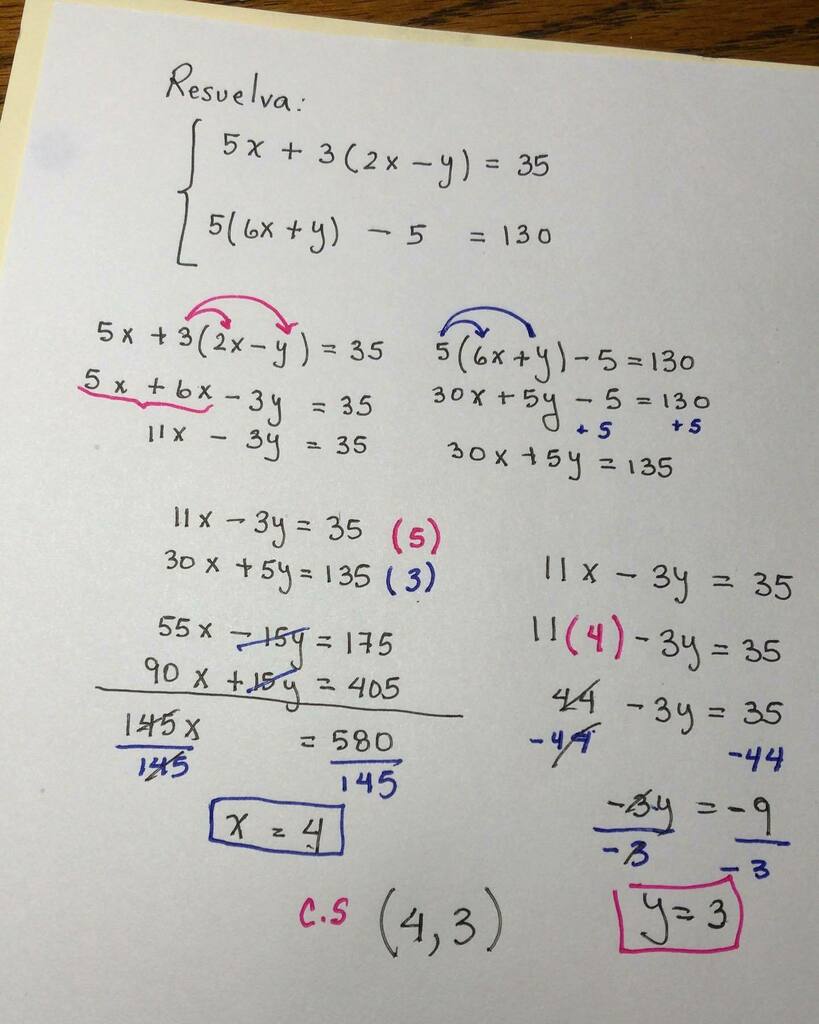 Resuelva:
5x + 3(2x - y) = 35
5(6x + y) - 5 = 130
5x + 3(2x - y) = 35
5x + 6x - 3y = 35
11x - 3y = 35
5(6x + y) - 5 = 130
30x + 5y - 5 = 130
+5 +5
30x + 5y = 135
11x - 3y = 35 (5)
30x + 5y = 135 (3)
55x - 15y = 175
90x + 15y = 405
145x = 580
145 145
x = 4
11x - 3y = 35
11(4) - 3y = 35
44 - 3y = 35
-44 -44
-3y = -9
-3 -3
y = 3
C.S (4,3)